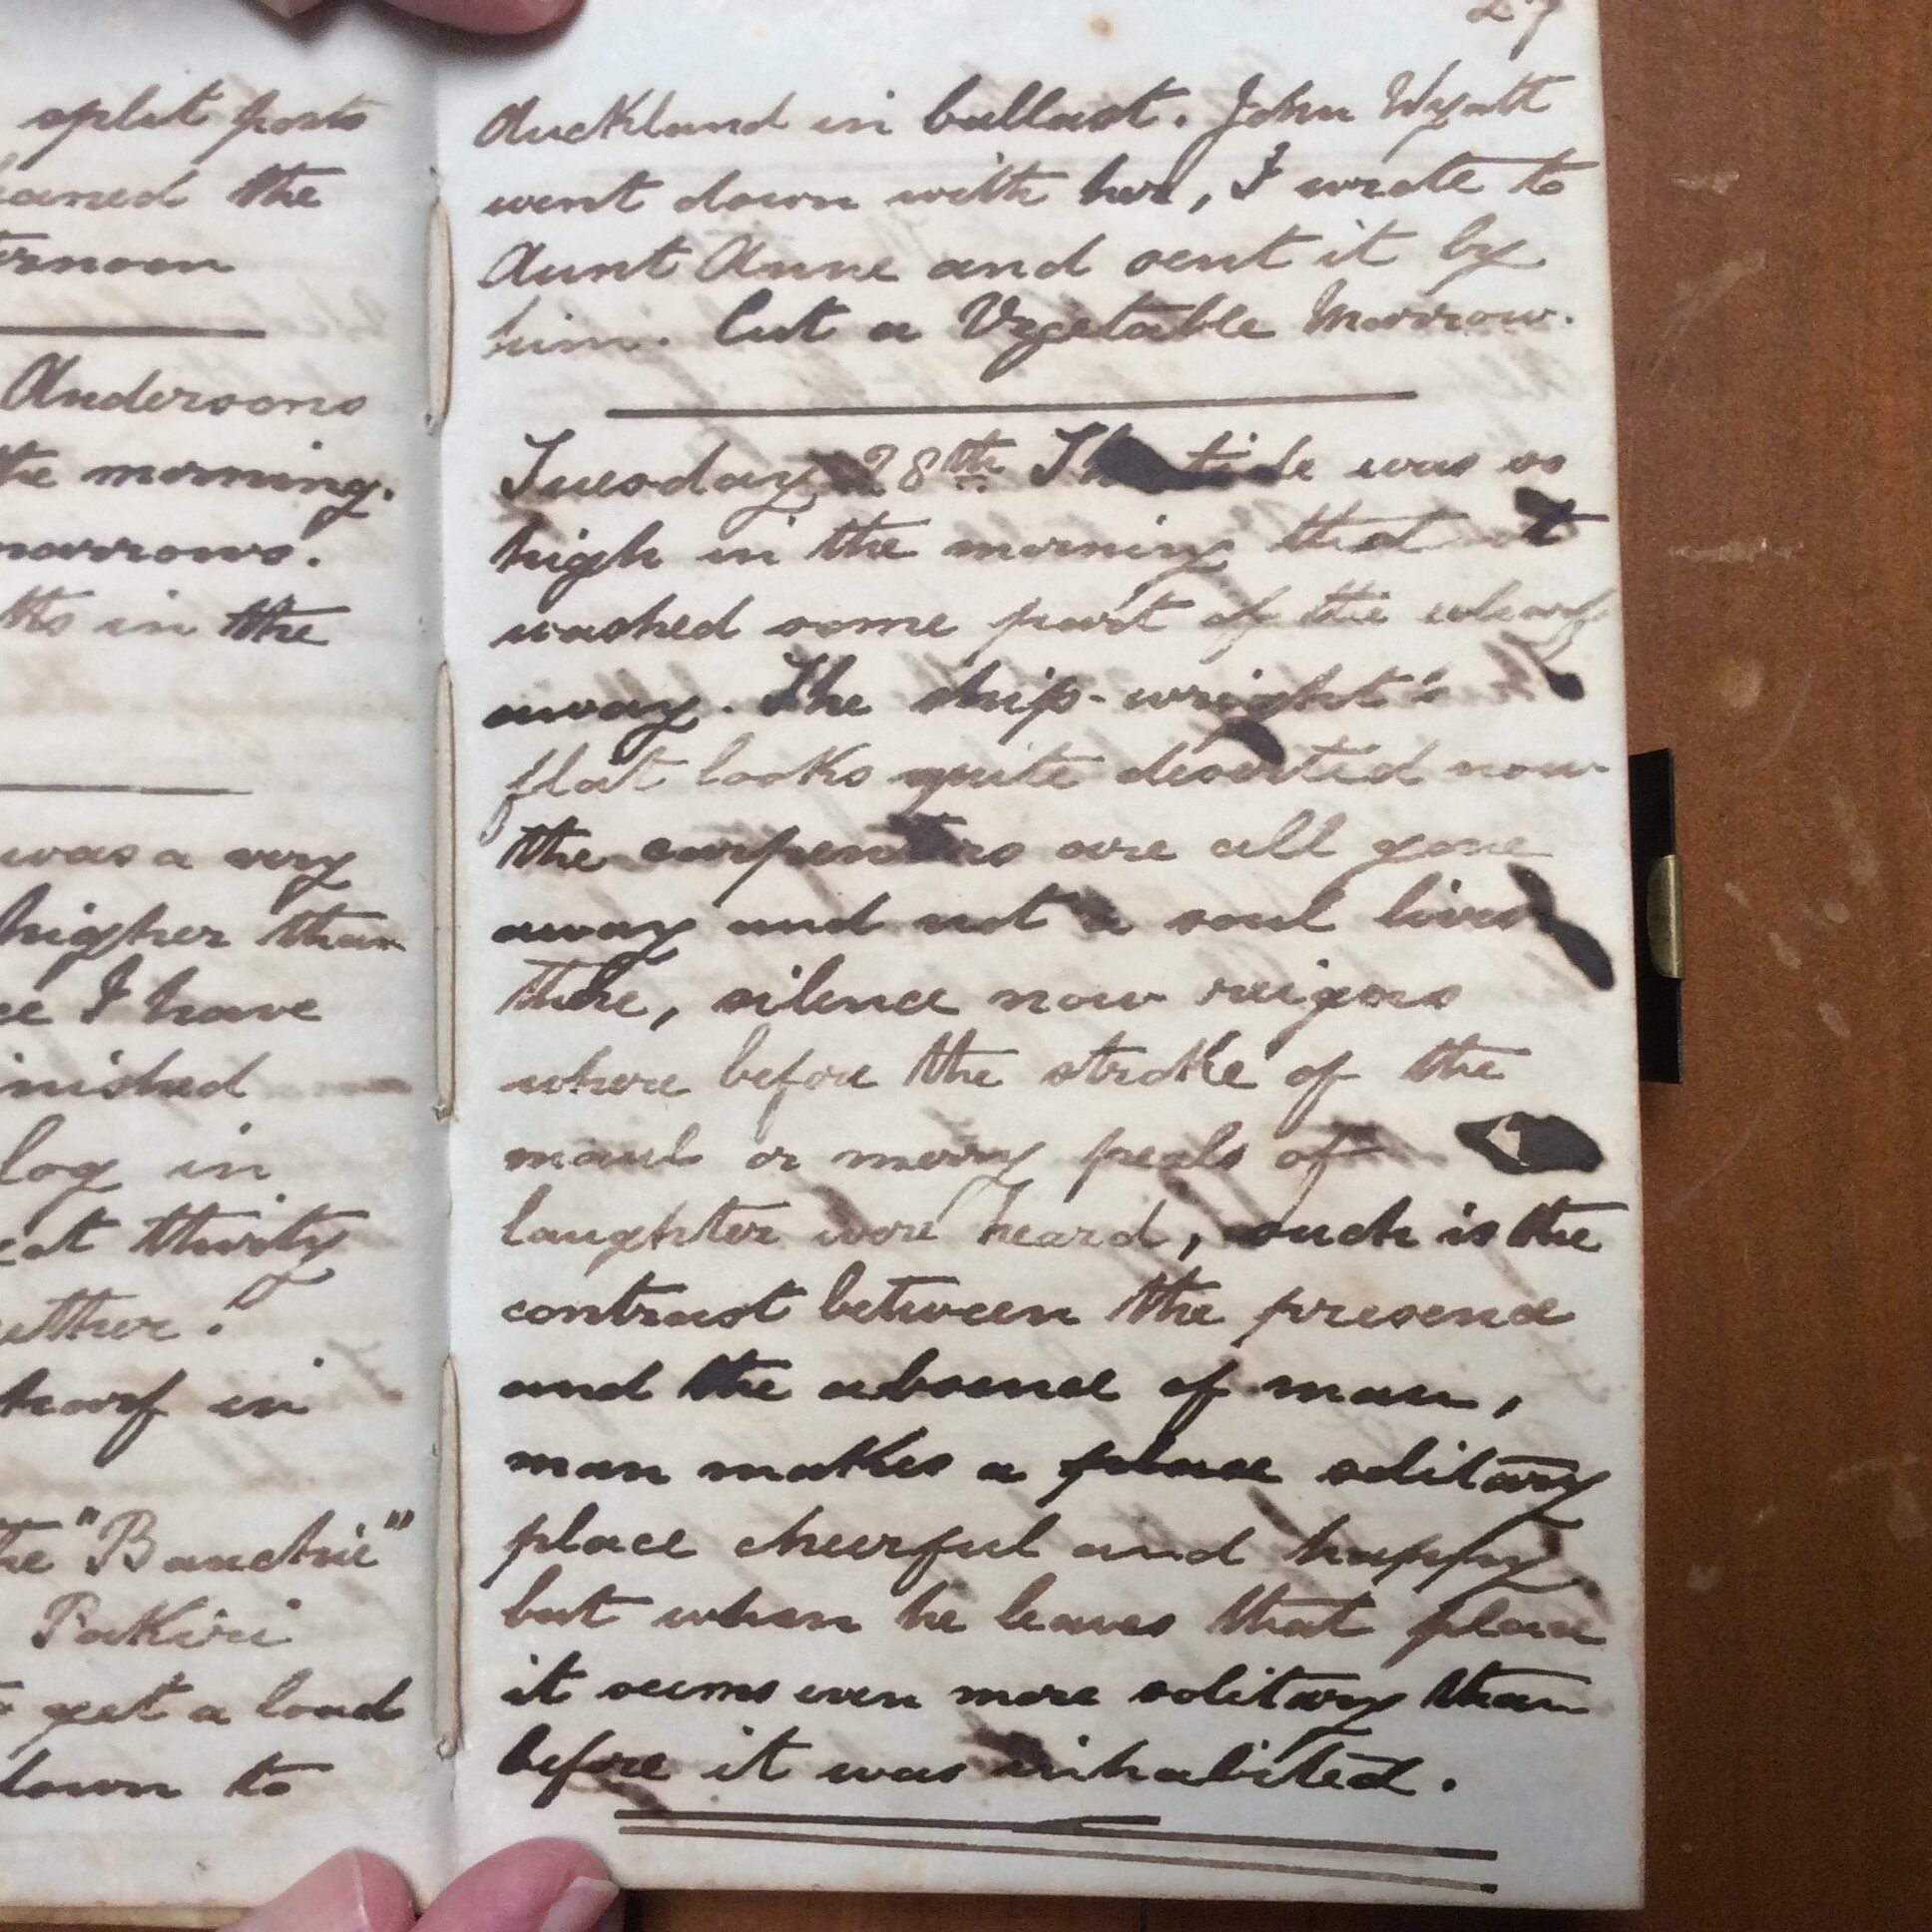 split posts
eaned the
ernoon
Andersons
the morning.
marrows.
tts in the
was a very
higher than
ce I have
inished
log in
eat thirty
ether!
harf in
the "Banchie"
Pakiri
get a load
down to
27
Auckland in ballast. John Wyatt
went down with her, I wrote to
Aunt Anne and sent it by
him. Cut a Vegetable Marrow.
Tuesday 28th The tide was so
high in the morning that it
washed some part of the wharf
away. The ship-wright's
flat looks quite deserted now
the carpenters are all gone
away and not a soul lives
there, silence now reigns
where before the stroke of the
maul or merry peals of
laughter were heard, such is the
contrast between the presence
and the absence of man,
man makes a place solitary
place cheerful and happy
but when he leaves that place
it seems even more solitary than
before it was inhabited.